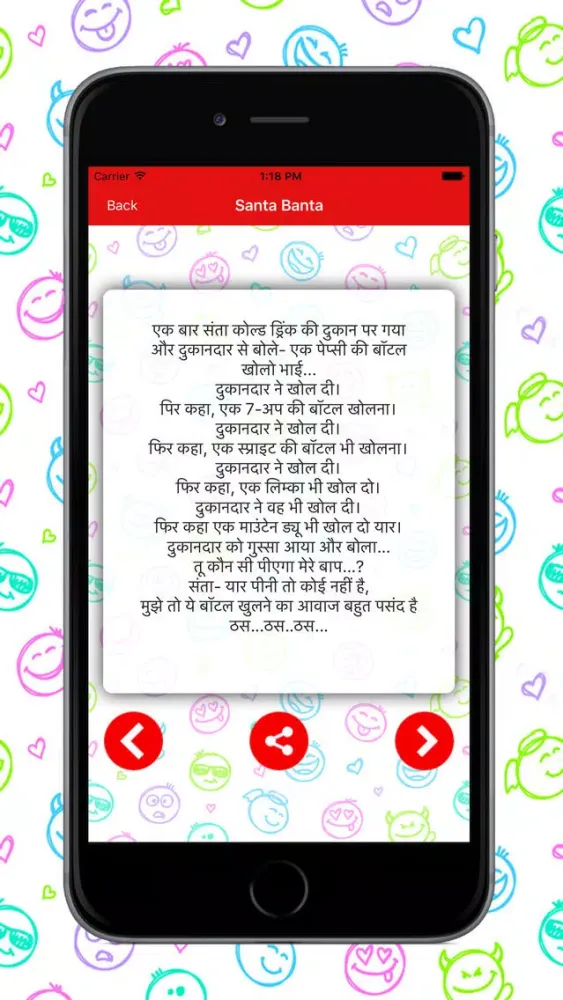 Carrier 1:18 PM
Back Santa Banta
एक बार संता कोल्ड ड्रिंक की दुकान पर गया
और दुकानदार से बोले- एक पेप्सी की बॉटल
खोलो भाई...
दुकानदार ने खोल दी।
पिर कहा, एक 7-अप की बॉटल खोलना।
दुकानदार ने खोल दी।
फिर कहा, एक स्प्राइट की बॉटल भी खोलना।
दुकानदार ने खोल दी।
फिर कहा, एक लिम्का भी खोल दो।
दुकानदार ने वह भी खोल दी।
फिर कहा एक माउंटेन ड्यू भी खोल दो यार।
दुकानदार को गुस्सा आया और बोला...
तू कौन सी पीएगा मेरे बाप...?
संता- यार पीनी तो कोई नहीं है,
मुझे तो ये बॉटल खुलने का आवाज बहुत पसंद है
ठस...ठस..ठस...